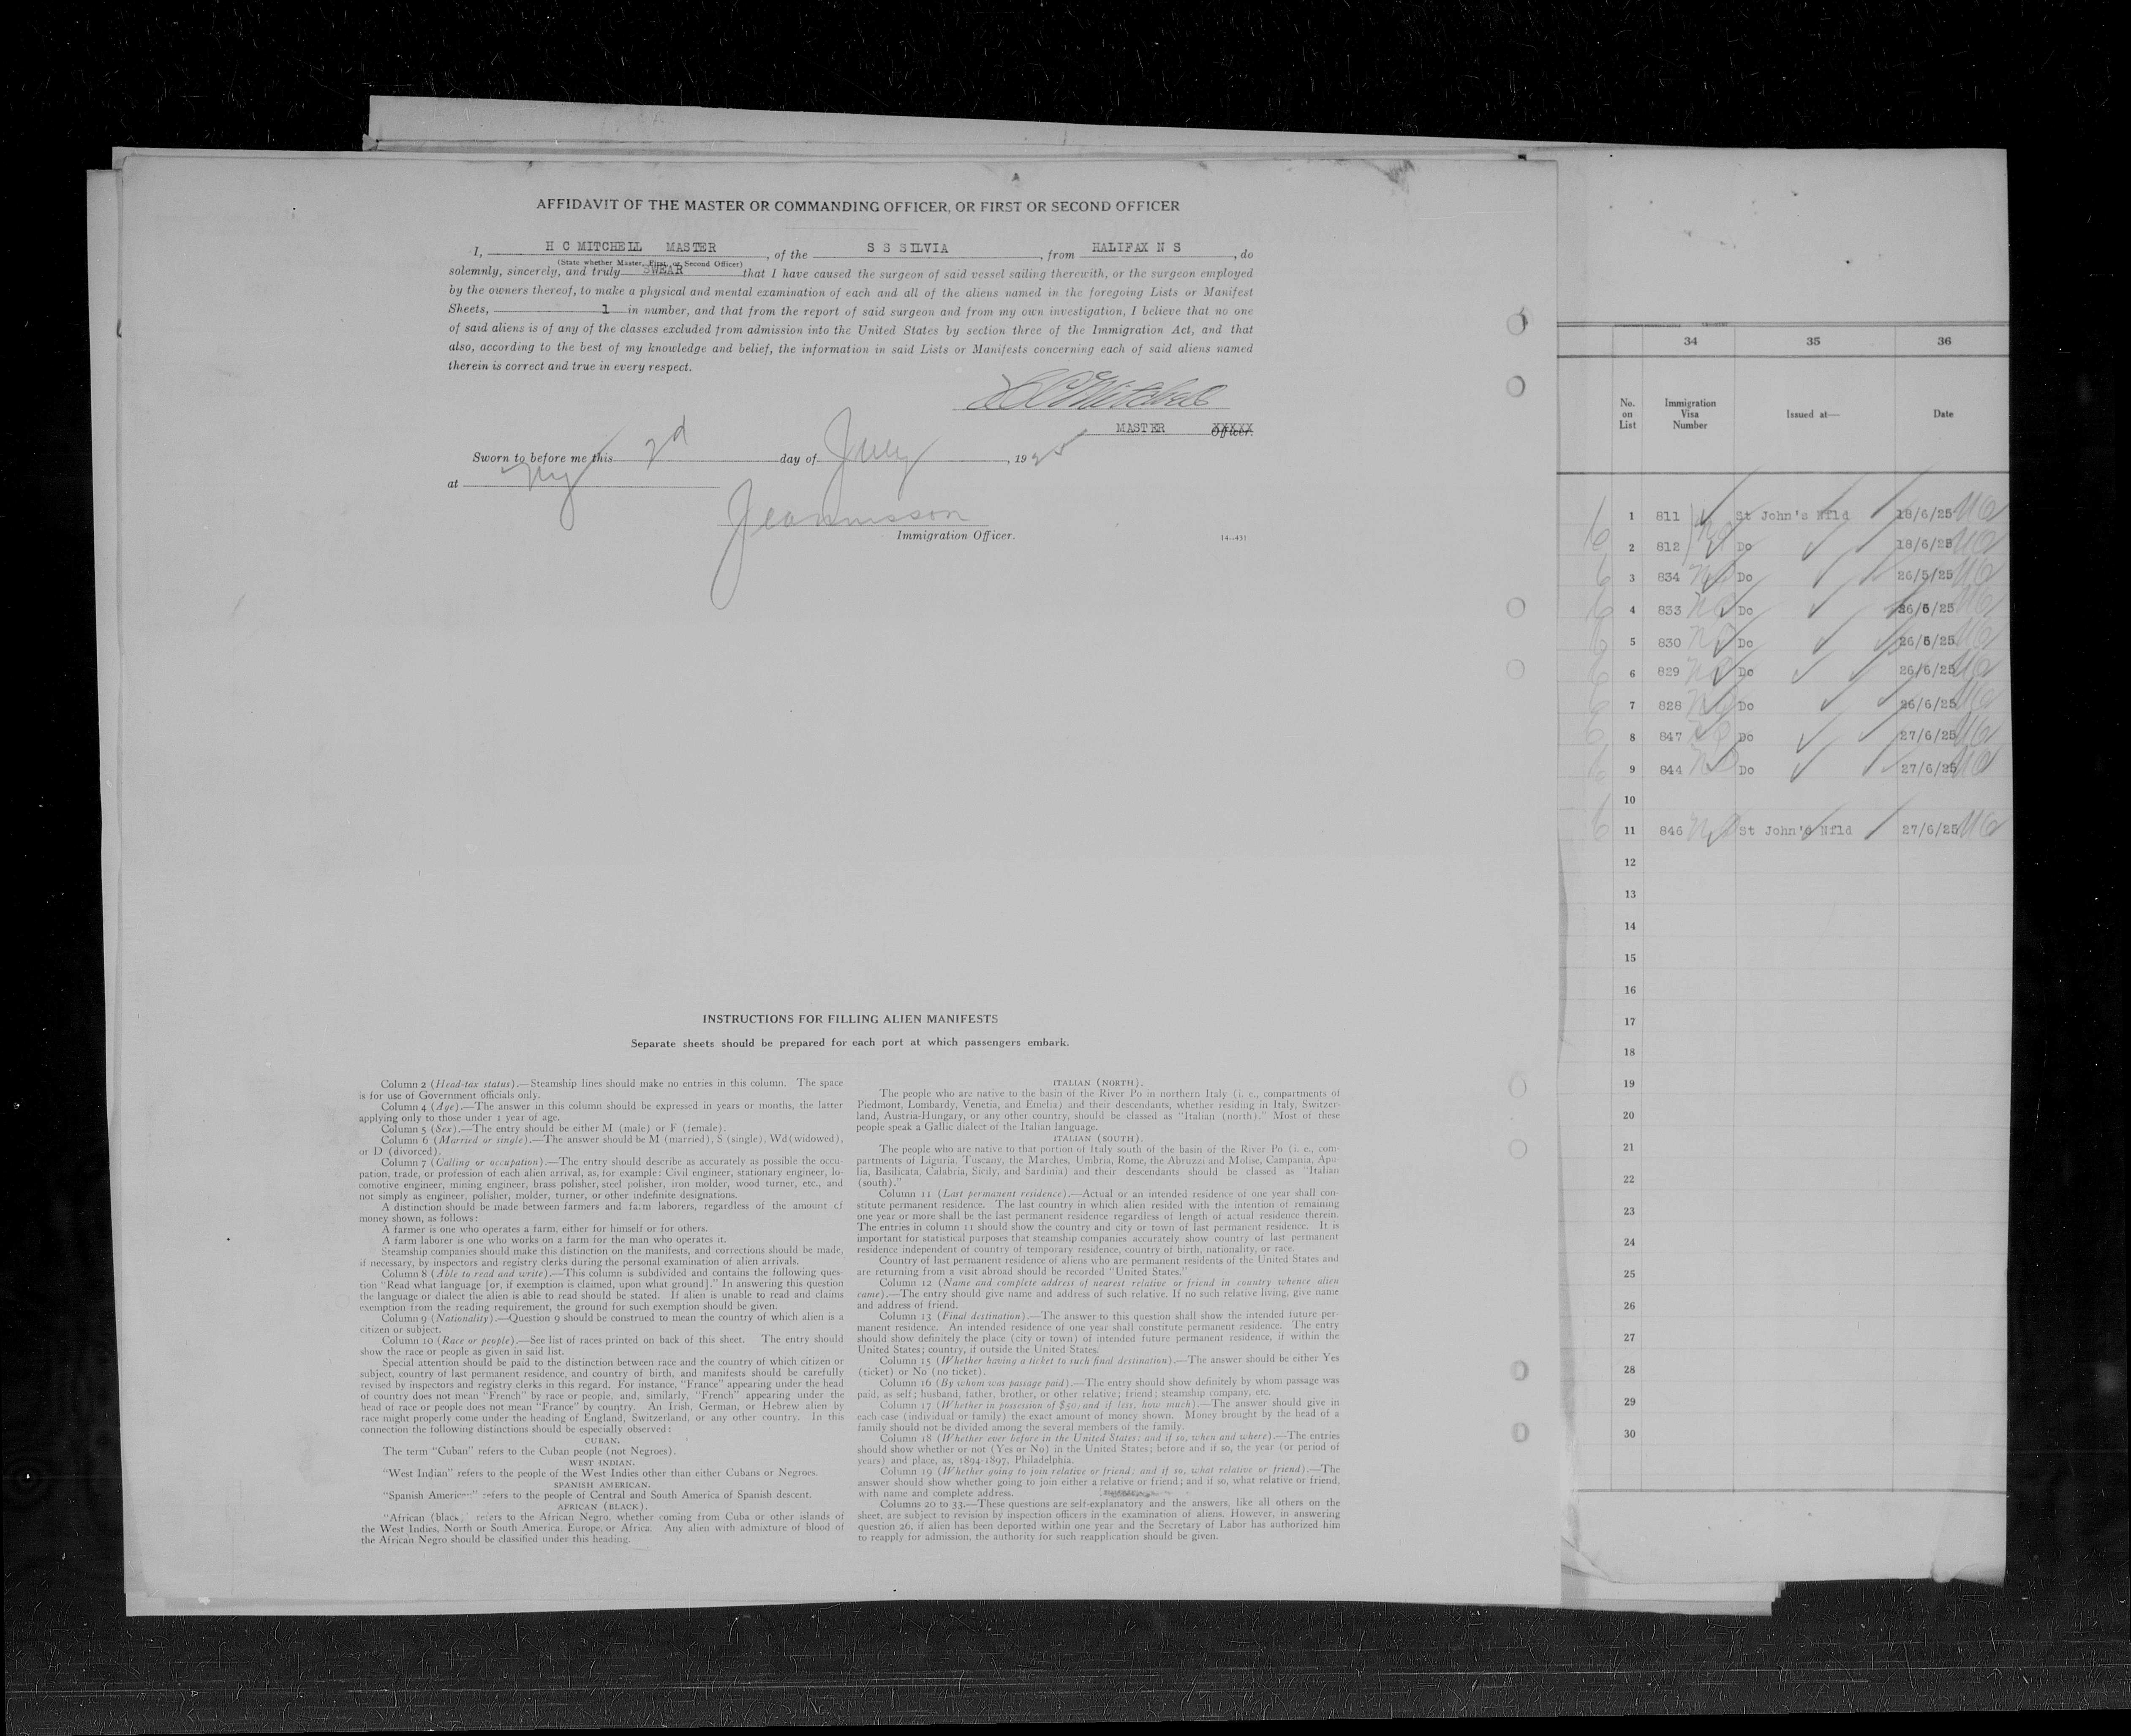 AFFIDAVIT OF THE MASTER OR COMMANDING OFFICER, OR FIRST OR SECOND OFFICER
I, H C MITCHELL MASTER, of the S S SILVIA, from HALIFAX N S, do
(State whether Master, First, or Second Officer)
solemnly, sincerely, and truly SWEAR that I have caused the surgeon of said vessel sailing therewith, or the surgeon employed
by the owners thereof, to make a physical and mental examination of each and all of the aliens named in the foregoing Lists or Manifest
Sheets, 1 in number, and that from the report of said surgeon and from my own investigation, I believe that no one
of said aliens is of any of the classes excluded from admission into the United States by section three of the Immigration Act, and that
also, according to the best of my knowledge and belief, the information in said Lists or Manifests concerning each of said aliens named
therein is correct and true in every respect.
H C Mitchell
MASTER XXXXX Officer.
Sworn to before me this 2d day of July, 1925
at NY
Immigration Officer.
14—431
INSTRUCTIONS FOR FILLING ALIEN MANIFESTS
Separate sheets should be prepared for each port at which passengers embark.
Column 2 (Head-tax status).—Steamship lines should make no entries in this column. The space
is for use of Government officials only.
Column 4 (Age).—The answer in this column should be expressed in years or months, the latter
applying only to those under 1 year of age.
Column 5 (Sex).—The entry should be either M (male) or F (female).
Column 6 (Married or single).—The answer should be M (married), S (single), Wd (widowed),
or D (divorced).
Column 7 (Calling or occupation).—The entry should describe as accurately as possible the occu-
pation, trade, or profession of each alien arrival, as, for example: Civil engineer, stationary engineer, lo-
comotive engineer, mining engineer, brass polisher, steel polisher, iron molder, wood turner, etc., and
not simply as engineer, polisher, molder, turner, or other indefinite designations.
A distinction should be made between farmers and farm laborers, regardless of the amount of
money shown, as follows:
A farmer is one who operates a farm, either for himself or for others.
A farm laborer is one who works on a farm for the man who operates it.
Steamship companies should make this distinction on the manifests, and corrections should be made,
if necessary, by inspectors and registry clerks during the personal examination of alien arrivals.
Column 8 (Able to read and write).—This column is subdivided and contains the following ques-
tion "Read what language [or, if exemption is claimed, upon what ground]." In answering this question
the language or dialect the alien is able to read should be stated. If alien is unable to read and claims
exemption from the reading requirement, the ground for such exemption should be given.
Column 9 (Nationality).—Question 9 should be construed to mean the country of which alien is a
citizen or subject.
Column 10 (Race or people).—See list of races printed on back of this sheet. The entry should
show the race or people as given in said list.
Special attention should be paid to the distinction between race and the country of which citizen or
subject, country of last permanent residence, and country of birth, and manifests should be carefully
revised by inspectors and registry clerks in this regard. For instance, "France" appearing under the head
of country does not mean "French" by race or people, and, similarly, "French" appearing under the
head of race or people does not mean "France" by country. An Irish, German, or Hebrew alien by
race might properly come under the heading of England, Switzerland, or any other country. In this
connection the following distinctions should be especially observed:
CUBAN.
The term "Cuban" refers to the Cuban people (not Negroes).
WEST INDIAN.
"West Indian" refers to the people of the West Indies other than either Cubans or Negroes.
SPANISH AMERICAN.
"Spanish American" refers to the people of Central and South America of Spanish descent.
AFRICAN (BLACK).
"African (black)" refers to the African Negro, whether coming from Cuba or other islands of
the West Indies, North or South America, Europe, or Africa. Any alien with admixture of blood of
the African Negro should be classified under this heading.
ITALIAN (NORTH).
The people who are native to the basin of the River Po in northern Italy (i. e., compartments of
Piedmont, Lombardy, Venetia, and Emelia) and their descendants, whether residing in Italy, Switzer-
land, Austria-Hungary, or any other country, should be classed as "Italian (north)." Most of these
people speak a Gallic dialect of the Italian language.
ITALIAN (SOUTH).
The people who are native to that portion of Italy south of the basin of the River Po (i. e., com-
partments of Liguria, Tuscany, the Marches, Umbria, Rome, the Abruzzi and Molise, Campania, Apu-
lia, Basilicata, Calabria, Sicily, and Sardinia) and their descendants should be classed as "Italian
(south)."
Column 11 (Last permanent residence).—Actual or an intended residence of one year shall con-
stitute permanent residence. The last country in which alien resided with the intention of remaining
one year or more shall be the last permanent residence regardless of length of actual residence therein.
The entries in column 11 should show the country and city or town of last permanent residence. It is
important for statistical purposes that steamship companies accurately show country of last permanent
residence independent of country of temporary residence, country of birth, nationality, or race.
Country of last permanent residence of aliens who are permanent residents of the United States and
are returning from a visit abroad should be recorded "United States."
Column 12 (Name and complete address of nearest relative or friend in country whence alien
came).—The entry should give name and address of such relative. If no such relative living, give name
and address of friend.
Column 13 (Final destination).—The answer to this question shall show the intended future per-
manent residence. An intended residence of one year shall constitute permanent residence. The entry
should show definitely the place (city or town) of intended future permanent residence, if within the
United States; country, if outside the United States.
Column 15 (Whether having a ticket to such final destination).—The answer should be either Yes
(ticket) or No (no ticket).
Column 16 (By whom was passage paid).—The entry should show definitely by whom passage was
paid, as self; husband, father, brother, or other relative; friend; steamship company, etc.
Column 17 (Whether in possession of $50; and if less, how much).—The answer should give in
each case (individual or family) the exact amount of money shown. Money brought by the head of a
family should not be divided among the several members of the family.
Column 18 (Whether ever before in the United States; and if so, when and where).—The entries
should show whether or not (Yes or No) in the United States; before and if so, the year (or period of
years) and place, as, 1894-1897, Philadelphia.
Column 19 (Whether going to join relative or friend; and if so, what relative or friend).—The
answer should show whether going to join either a relative or friend; and if so, what relative or friend,
with name and complete address.
Columns 20 to 33.—These questions are self-explanatory and the answers, like all others on the
sheet, are subject to revision by inspection officers in the examination of aliens. However, in answering
question 26, if alien has been deported within one year and the Secretary of Labor has authorized him
to reapply for admission, the authority for such reapplication should be given.
34 35 36
No. on List Immigration Visa Number Issued at— Date
1 811 St John's Nfld 18/6/25
2 812 Do 18/6/25
3 834 Do 26/5/25
4 833 Do 26/6/25
5 830 Do 26/6/25
6 829 Do 26/6/25
7 828 Do 26/6/25
8 847 Do 27/6/25
9 844 Do 27/6/25
10
11 846 St John's Nfld 27/6/25
12
13
14
15
16
17
18
19
20
21
22
23
24
25
26
27
28
29
30